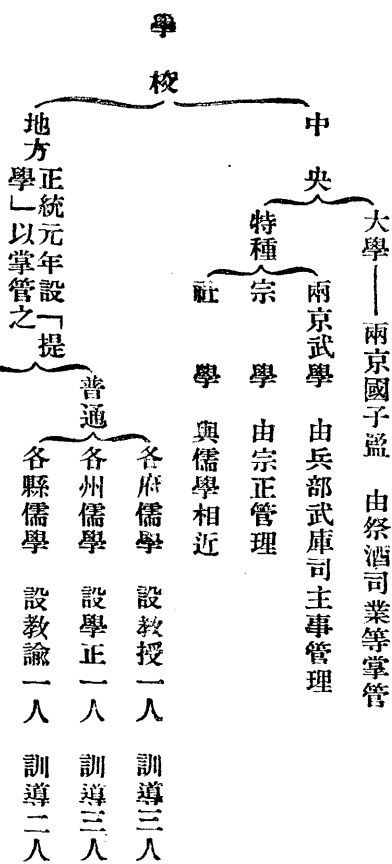 學校
中央
大學——兩京國子監 由祭酒司業等掌管
特種
兩京武學 由兵部武庫司主事管理
宗學 由宗正管理
社學 與儒學相近
地方 正統元年設「提
學」以掌管之
普通
各府儒學 設教授一人 訓導三人
各州儒學 設學正一人 訓導三人
各縣儒學 設教諭一人 訓導二人